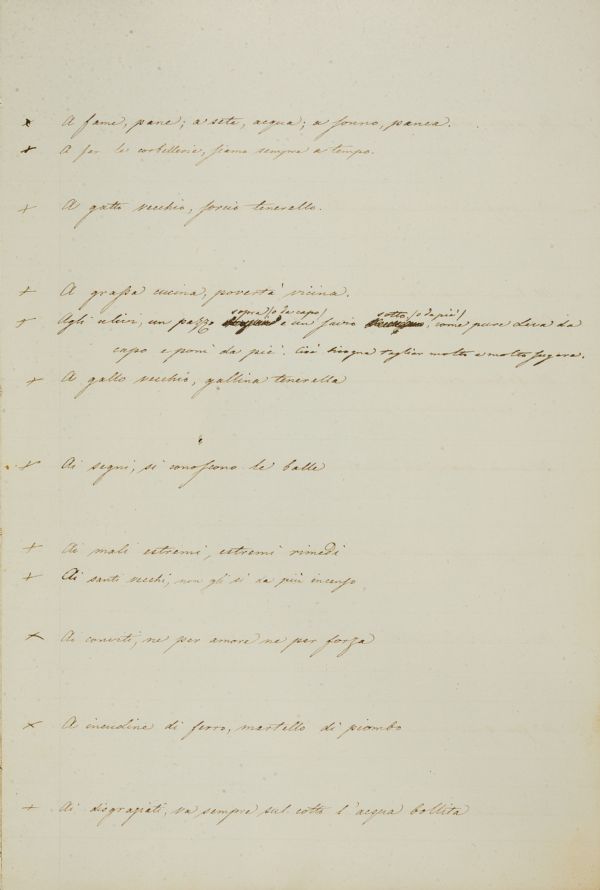 x A fame, pane; a sete, acqua; a sonno, panca.
x A far le corbellerie, siamo sempre a tempo.
+ A gatto vecchio, sorcio tenerello.
+ A grassa cucina, povertà vicina.
sopra (o da capo) sotto (o da piè)
+ Agli ulivi, un pazzo e un savio, come pure leva da
capo e poni da piè. Cioè bisogna toglier molto e molto sugare.
+ A gallo vecchio, gallina tenerella
+ Ai segni, si conoscono le balle
+ Ai mali estremi, estremi rimedi
+ Ai santi vecchi, non gli si da più incenso
x Ai conviti, ne per amore ne per forza
x A incudine di ferro, martello di piombo
+ Ai disgraziati, va sempre sul cotto l'acqua bollita